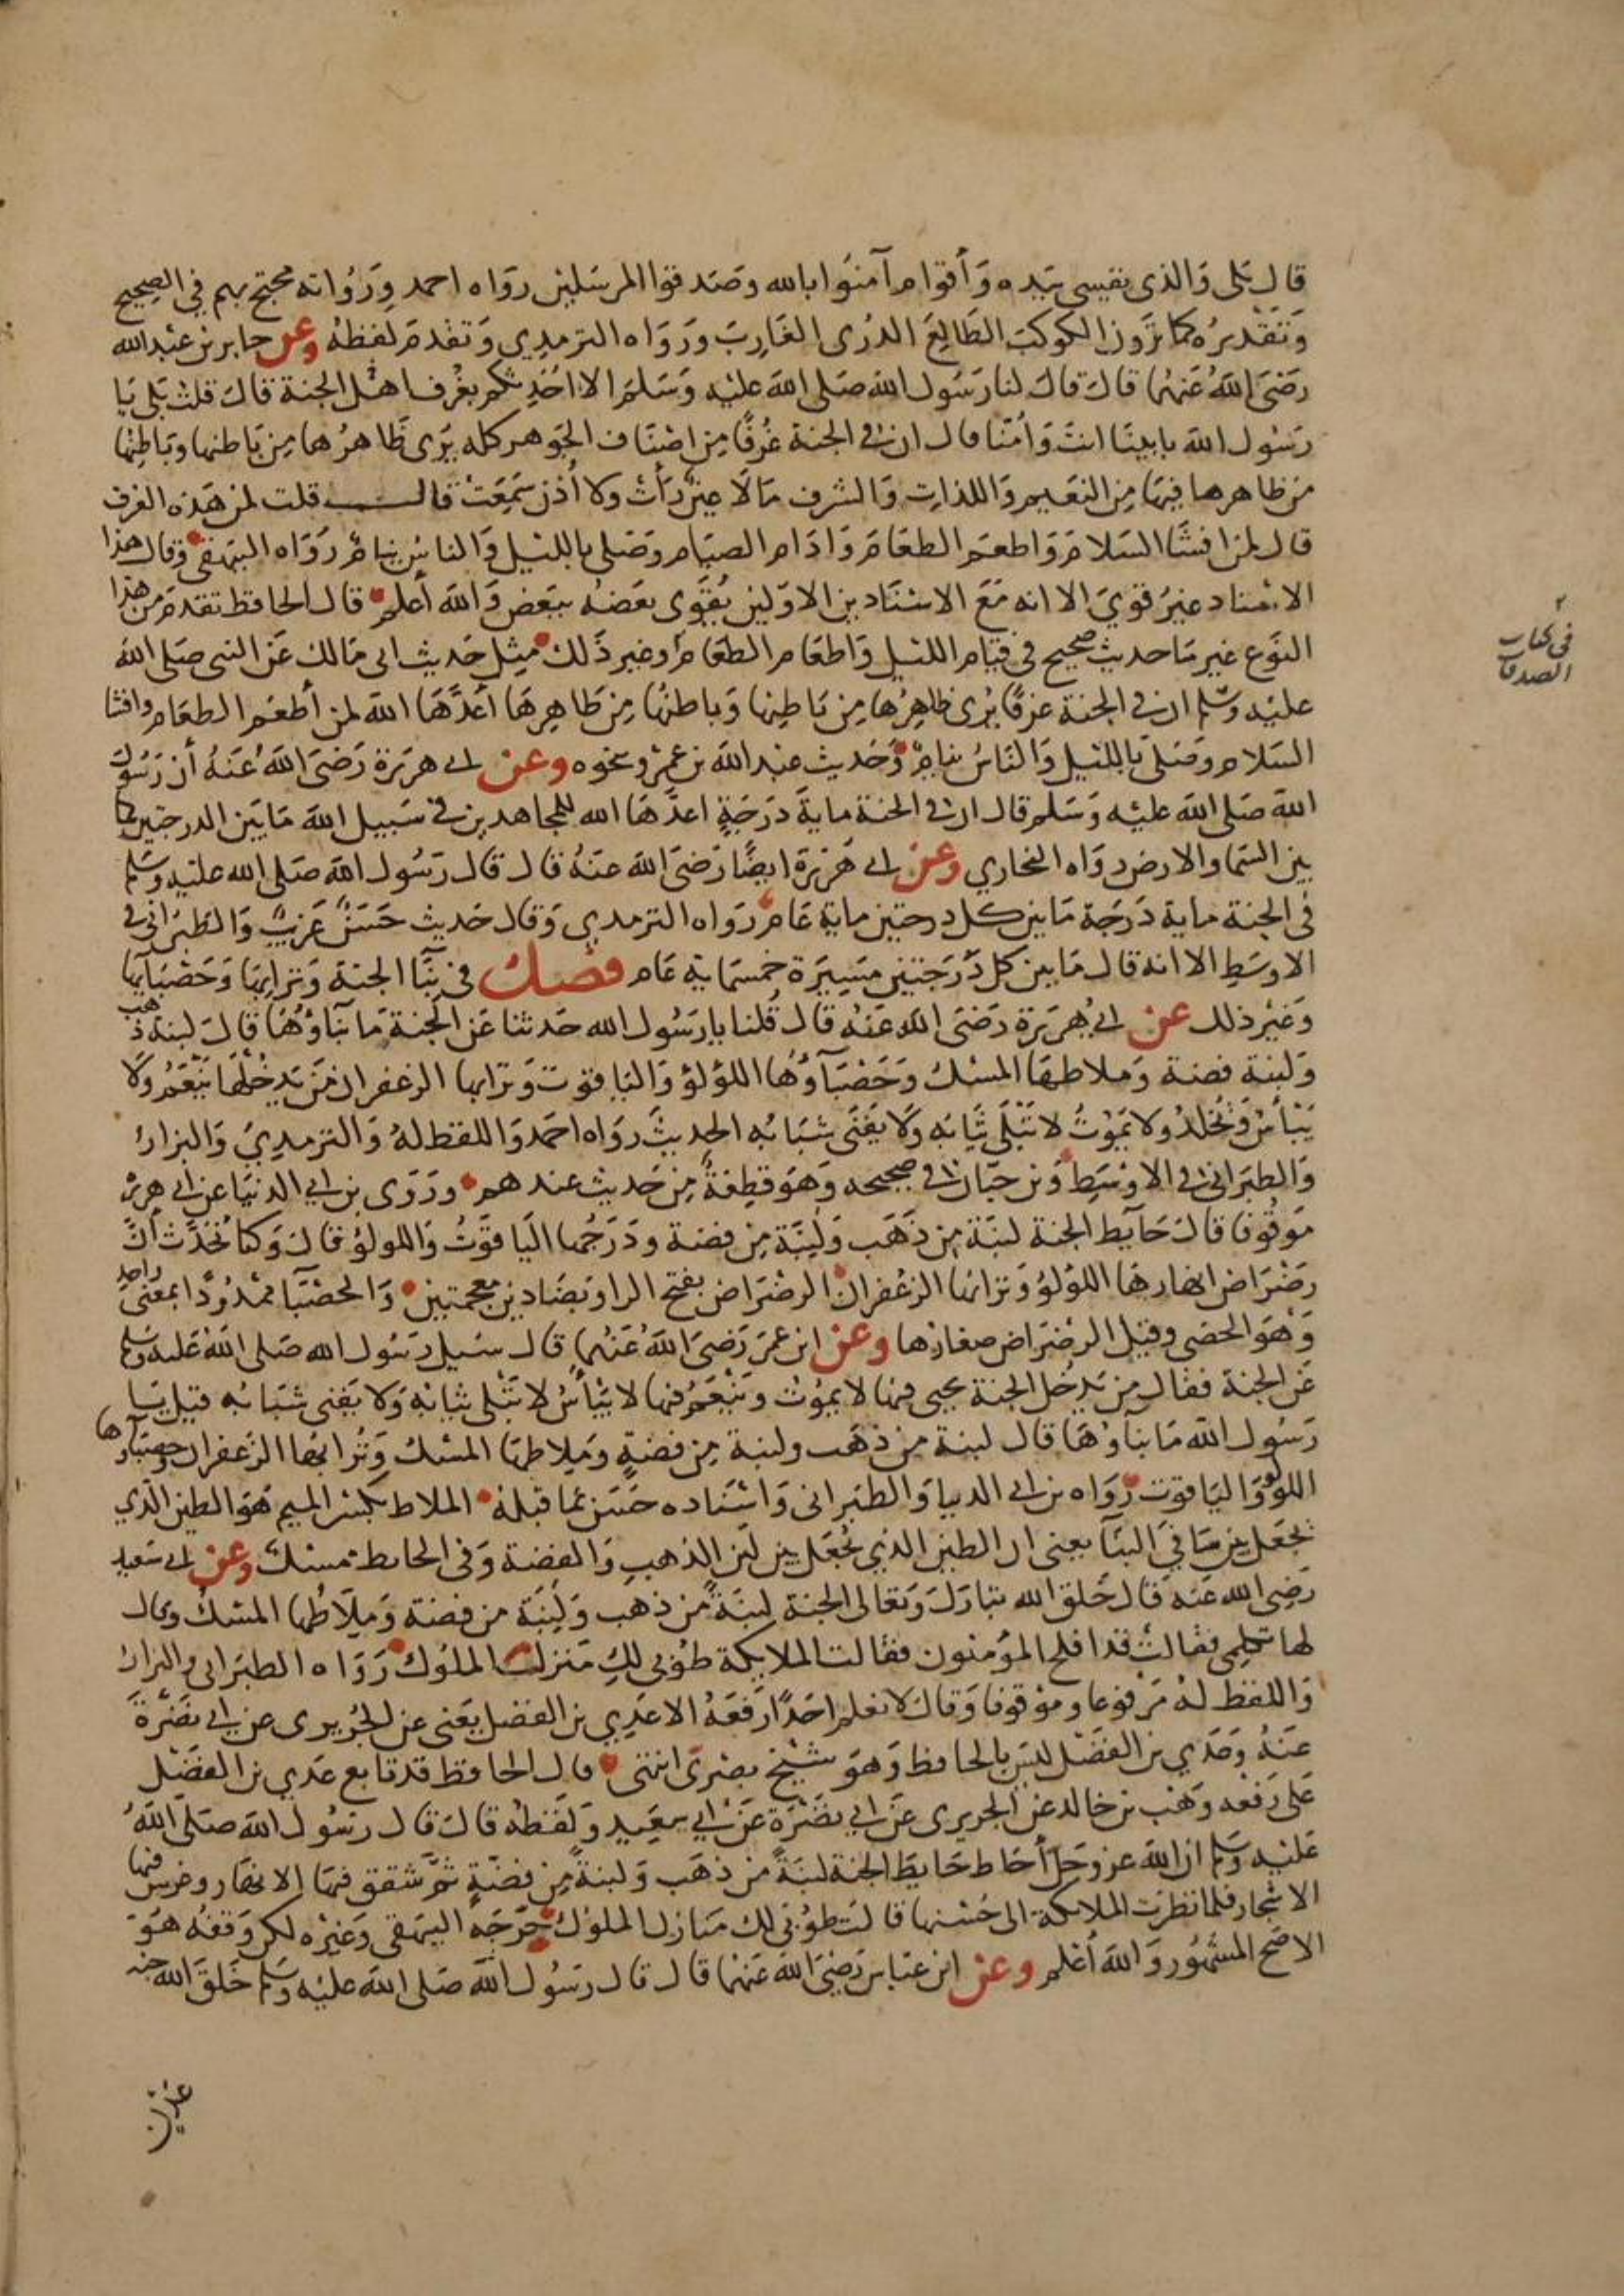 قال بلى والذي نفيسي بيده وأقوام آمنوا بالله وصدقوا المرسلين رواه احمد ورواته محتج بهم في الصحيح
وتقديره كما ترون الكوكب الطالع الدرى الغارب ورواه الترمدي وتقدم لفظه وعن جابر بن عبد الله
رضى الله عنهما قال قال لنا رسول الله صلى الله عليه وسلم الا احدثكم بغرف اهل الجنة قال قلت بلى يا
رسول الله بابينا انت وأمنا قال ان في الجنة غرفا من اصناف الجوهر كله يرى ظاهرها من باطنها وباطنها
من ظاهرها فيها من النعيم واللذات والشرف مالا عين رأت ولا أذن سمعت قال قلت لمن هذه الغرف
قال لمن افشا السلام واطعم الطعام وادام الصيام وصلى بالليل والناس نيام رواه البيهقي وقال هذا
الاسناد غير قوي الا انه مع الاسنادين الاولين يقوى بعضه ببعض والله أعلم قال الحافظ تقدم من هذا
النوع غير ما حديث صحيح في قيام الليل واطعام الطعام وغير ذلك مثل حديث ابى مالك عن النبى صلى الله
عليه وسلم ان في الجنة غرفا يرى ظاهرها من باطنها وباطنها من ظاهرها أعدها الله لمن أطعم الطعام وافشا
السلام وصلى بالليل والناس نيام وحديث عبد الله بن عمرو نحوه وعن ابى هريرة رضى الله عنه أن رسول
الله صلى الله عليه وسلم قال ان في الجنة ماية درجة اعدها الله للمجاهدين في سبيل الله ما بين الدرجتين كما
بين السما والارض رواه البخاري وعن ابى هريرة ايضا رضى الله عنه قال قال رسول الله صلى الله عليه وسلم
في الجنة ماية درجة ما بين كل درجتين ماية عام رواه الترمدي وقال حديث حسن غريب والطبراني في
الاوسط الا انه قال ما بين كل درجتين مسيرة خمسماية عام فصل في بنآ الجنة وترابها وحصبايها
وغير ذلك عن ابي هريرة رضى الله عنه قال قلنا يا رسول الله حدثنا عن الجنة ما بنآؤها قال لبنة ذهب
ولبنة فضة وملاطها المسك وحصبآؤها اللؤلؤ والياقوت وترابها الزعفران من يدخلها ينعم ولا
يبأس ويخلد ولا يموت لا تبلى ثيابه ولا يفنى شبابه الحديث رواه احمد واللفظ له والترمدي والبزار
والطبراني في الاوسط وبن حبان في صحيحه وهو قطعة من حديث عندهم وروى بن ابي الدنيا عن ابى هريرة
موقوفا قال حآيط الجنة لبنة من ذهب ولبنة من فضة ودرجها الياقوت واللولؤ قال وكنا نحدث أن
رضراض انهارها اللؤلؤ وترابها الزعفران الرضراض بفتح الرا وبضادين معجمتين والحصبآ ممدودا بمعنى واحد
وهو الحصى وقيل الرضراض صغارها وعن ابن عمر رضى الله عنهما قال سيل رسول الله صلى الله عليه وسلم
عن الجنة فقال من يدخل الجنة يحيى فيها لا يموت وينعم فيها لا يبأس لا تبلى ثيابه ولا يفنى شبابه قيل يا
رسول الله ما بنآوها قال لبنة من ذهب ولبنة من فضة وملاطها المسك وترابها الزعفران وحصبآوها
اللولو والياقوت رواه بن ابى الدنيا والطبراني واسناده حسن بما قبله الملاط بكسر الميم هو الطين الذي
يجعل بين سافي البنآ يعنى ان الطين الذي يجعل بين لبن الذهب والفضة وفى الحايط مسك وعن ابى سعيد
رضى الله عنه قال خلق الله تبارك وتعالى الجنة لبنة من ذهب ولبنة من فضة وملاطها المسك وقال
لها تكلمى فقالت قد افلح المؤمنون فقالت الملايكة طوبى لك منزلت الملوك رواه الطبراني والبزار
واللفظ له مرفوعا وموقوفا وقال لا نعلم احدا رفعه الا عدي بن الفضل يعنى عن الجريرى عن ابي نضرة
عنه وعدي بن الفضل ليس بالحافظ وهو شيخ بصرى انتهى قال الحافظ قد تابع عدي بن الفضل
على رفعه وهب بن خالد عن الجريرى عن ابي نضرة عن ابي سعيد ولفظه قال قال رسول الله صلى الله
عليه وسلم ان الله عز وجل أحاط حايط الجنة لبنة من ذهب ولبنة من فضة ثم شقق فيها الانهار وغرس فيها
الاشجار فلما نظرت الملائكة الى حسنها قالت طوبى لك منازل الملوك خرجه البيهقى وغيره لكن وقفه هو
الاصح المشهور والله أعلم وعن ابن عباس رضى الله عنهما قال قال رسول الله صلى الله عليه وسلم خلق الله جنة
عدن
في كتاب
الصدقا